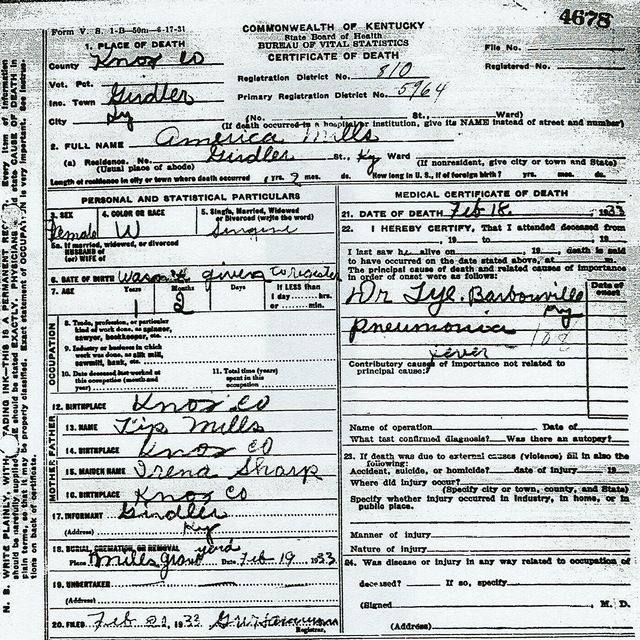 4678
Form V. S. 1-B—50m—6-17-31
COMMONWEALTH OF KENTUCKY
State Board of Health
BUREAU OF VITAL STATISTICS
CERTIFICATE OF DEATH
File No.
Registered No.
1. PLACE OF DEATH
County Knox Co
Registration District No. 810
Vot. Pct. Girdler
Inc. Town
Primary Registration District No. 5964
City Ky (No. St., Ward)
(If death occurred in a hospital or institution, give its NAME instead of street and number)
2. FULL NAME America Mills
(a) Residence. No. Girdler St., Ky Ward
(Usual place of abode) (If nonresident, give city or town and State)
Length of residence in city or town where death occurred 1 yrs. 2 mos. ds. How long in U. S., if of foreign birth? yrs. mos. ds.
PERSONAL AND STATISTICAL PARTICULARS
3. SEX Female
4. COLOR OR RACE W
5. Single, Married, Widowed or Divorced (write the word)
5a. If married, widowed, or divorced
HUSBAND of
(or) WIFE of
6. DATE OF BIRTH was not given
7. AGE Years 1 Months 2 Days If LESS than
1 day hrs.
or min.
OCCUPATION
8. Trade, profession, or particular
kind of work done, as spinner,
sawyer, bookkeeper, etc.
9. Industry or business in which
work was done, as silk mill,
sawmill, bank, etc.
10. Date deceased last worked at
this occupation (month and
year)
11. Total time (years)
spent in this
occupation
12. BIRTHPLACE Knox Co
FATHER
13. NAME Tip Mills
14. BIRTHPLACE Knox Co
MOTHER
15. MAIDEN NAME Irena Sharp
16. BIRTHPLACE Knox Co
17. INFORMANT Girdler
(Address) Ky
18. BURIAL, CREMATION, OR REMOVAL
Place Mills grave yard Date Feb 19 1933
19. UNDERTAKER
(Address)
20. FILED Feb 21, 1933
Registrar.
MEDICAL CERTIFICATE OF DEATH
21. DATE OF DEATH Feb 18, 1933
22. I HEREBY CERTIFY, That I attended deceased from
, 19 to , 19
I last saw h alive on , 19 death is said
to have occurred on the date stated above, at m.
The principal cause of death and related causes of importance
in order of onset were as follows:
Date of onset
Dr Tye. Barbourville
Ky
pneumonia 108
fever
Contributory causes of importance not related to
principal cause:
Name of operation Date of
What test confirmed diagnosis? Was there an autopsy?
23. If death was due to external causes (violence) fill in also the
following:
Accident, suicide, or homicide? date of injury 19
Where did injury occur?
(Specify city or town, county, and State)
Specify whether injury occurred in industry, in home, or in
public place.
Manner of injury
Nature of injury
24. Was disease or injury in any way related to occupation of
deceased? If so, specify
(Signed) M. D.
(Address)